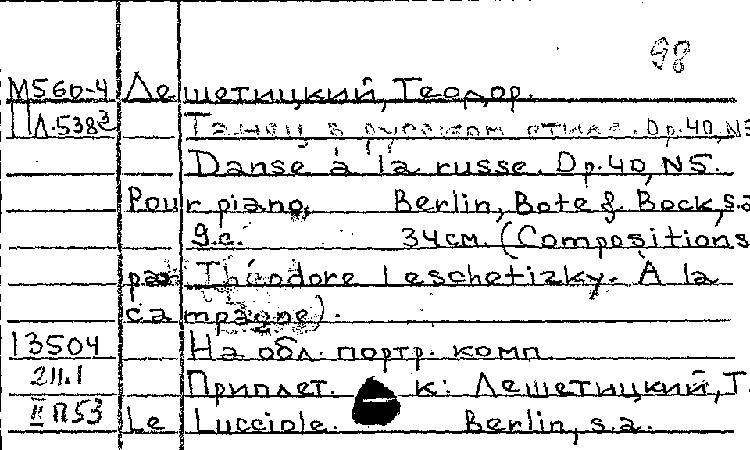 98
М560-4 Лешетицкий, Теодор.
Пл.538³ Танец в русском стиле. Op.40, N5
Danse à la russe. Op.40, N5.
Pour piano. Berlin, Bote & Bock, s.a
9 с. 34см. (Compositions
par Théodore Leschetizky. À la
campagne).
13504 На обл. портр. комп.
211.1 Приплет. к: Лешетицкий, Т.
II П53 Le Lucciole. Berlin, s.a.